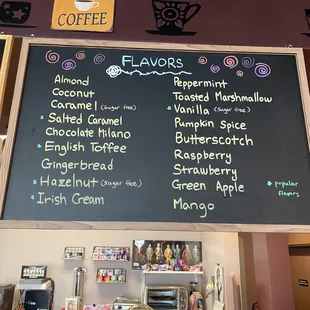 COFFEE
FLAVORS
Almond
Coconut
Caramel (sugar free)
* Salted Caramel
Chocolate Milano
* English Toffee
Gingerbread
* Hazelnut (sugar free)
* Irish Cream
Peppermint
Toasted Marshmallow
* Vanilla (sugar free)
Pumpkin Spice
Butterscotch
Raspberry
Strawberry
Green Apple
Mango
* popular
flavors